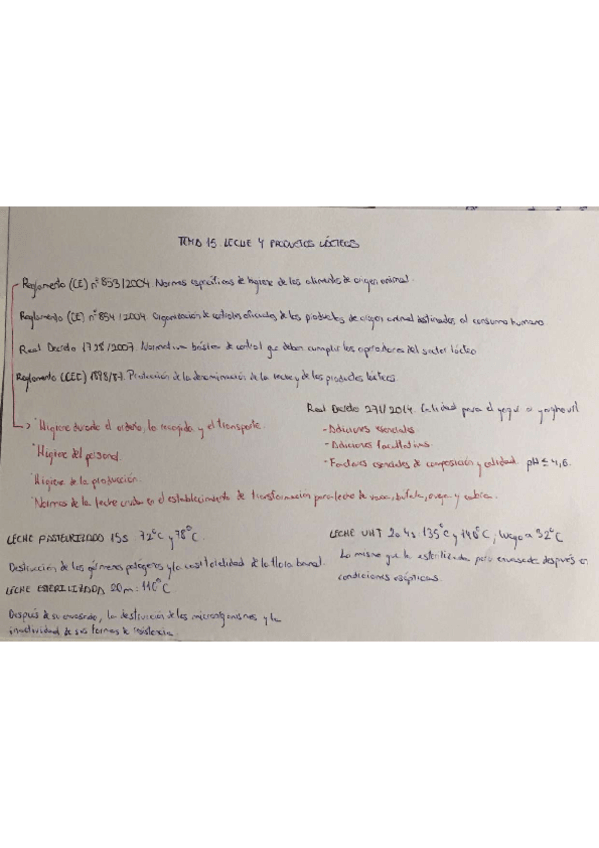 TEMA 15. LECHE Y PRODUCTOS LÁCTEOS
Reglamento (CE) nº 853/2004. Normas específicas de higiene de los alimentos de origen animal.
Reglamento (CE) nº 854/2004. Organización de controles oficiales de los productos de origen animal destinados al consumo humano
Real Decreto 1728/2007. Normativa básica de control que deben cumplir los operadores del sector lácteo
Reglamento (CEE) 1898/87. Protección de la denominación de la leche y de los productos lácteos.
Real Decreto 271/2014. Calidad para el yogur o yoghourt.
· Higiene durante el ordeño, la recogida y el transporte.
- Adiciones esenciales.
- Adiciones facultativas.
· Higiene del personal.
- Factores esenciales de composición y calidad. pH ≤ 4,6.
· Higiene de la producción.
· Normas de la leche cruda en el establecimiento de transformación para leche de vaca, búfala, oveja y cabra.
LECHE PASTEURIZADA 15s 72ºC y 78ºC.
Destrucción de los gérmenes patógenos y la casi totalidad de la flora banal.
LECHE UHT 2 o 4s 135ºC y 140ºC, luego a 32ºC
Lo mismo que la esterilizada pero envasada después en
condiciones asépticas.
LECHE ESTERILIZADA 20m : 110ºC
Después de su envasado, la destrucción de los microorganismos y la
inactividad de sus formas de resistencia.